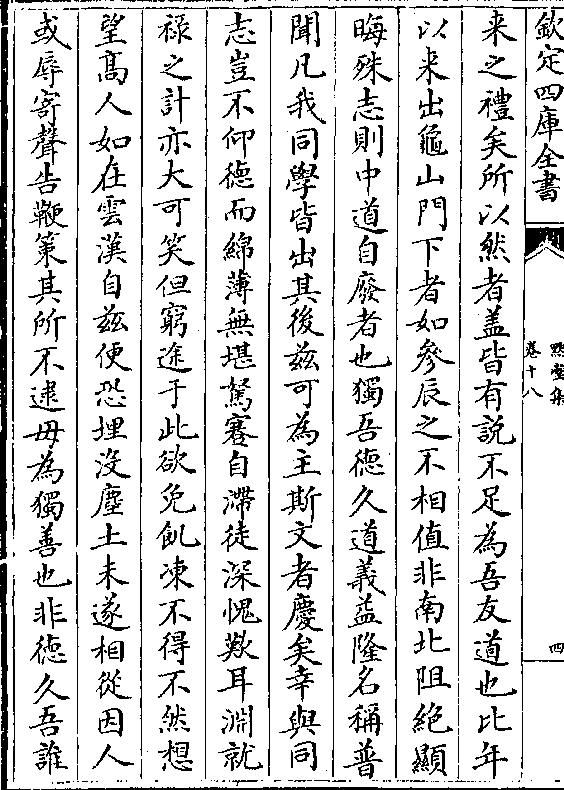 欽定四庫全書
黙堂集
卷十八
四
来之禮矣所以然者盖皆有説不足為吾友道也比年
以来出龜山門下者如參辰之不相值非南北阻絶顯
晦殊志則中道自廢者也獨吾德久道義益隆名稱普
聞凡我同學皆出其後兹可為主斯文者慶矣幸與同
志豈不仰德而綿薄無堪駑蹇自滯徒深愧歎耳淵就
禄之計亦大可笑但窮途于此欲免飢凍不得不然想
望髙人如在雲漢自兹便恐埋沒塵土未遂相從因人
或辱寄聲告鞭策其所不逮毋為獨善也非德久吾誰